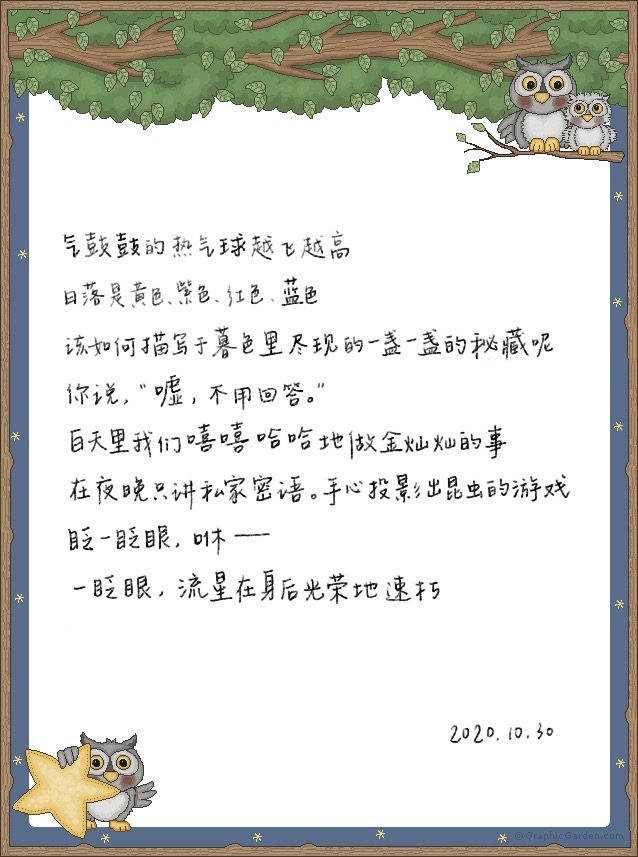 气鼓鼓的热气球越飞越高
日落是黄色、紫色、红色、蓝色
该如何描写于暮色里尽现的一盏一盏的秘藏呢
你说，“嘘，不用回答。”
白天里我们嘻嘻哈哈地做金灿灿的事
在夜晚只讲私家密语。手心投影出昆虫的游戏
眨一眨眼，咻——
一眨眼，流星在身后光荣地速朽
2020.10.30
©GraphicGarden.com